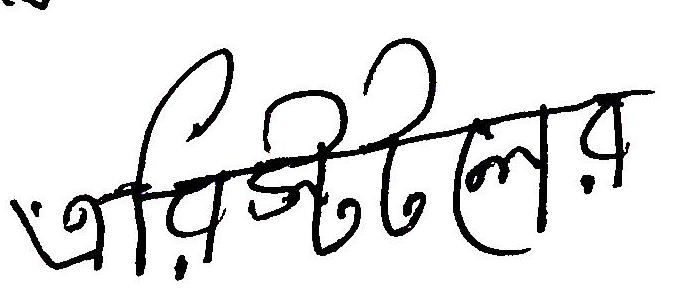 এরিস্টটলের